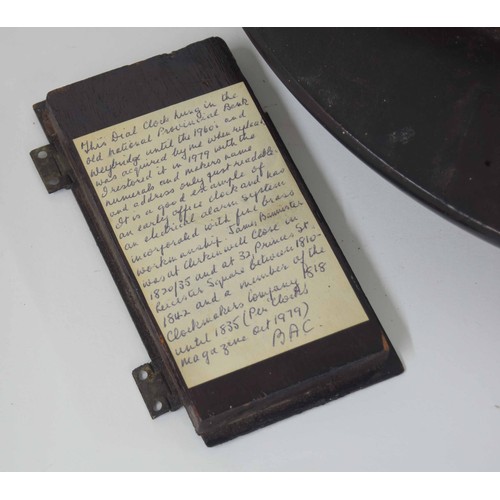 This Dial Clock hung in the
old National Provincial Bank
Weybridge until the 1960s and
was acquired by me when replaced
I restored it in 1979 with the
numerals and makers name
and address only just readable.
It is a good example of
an early office clock and has
an electrical alarm system
incorporated with full brass
workmanship. James Bannister
was at Clerkenwell Close in
1820/35 and at 32 Princes St.
Leicester Square between 1810-
1842 and a member of the
Clockmakers Company 1818
until 1835 (Per Clocks
magazine Oct 1979)
BAC.